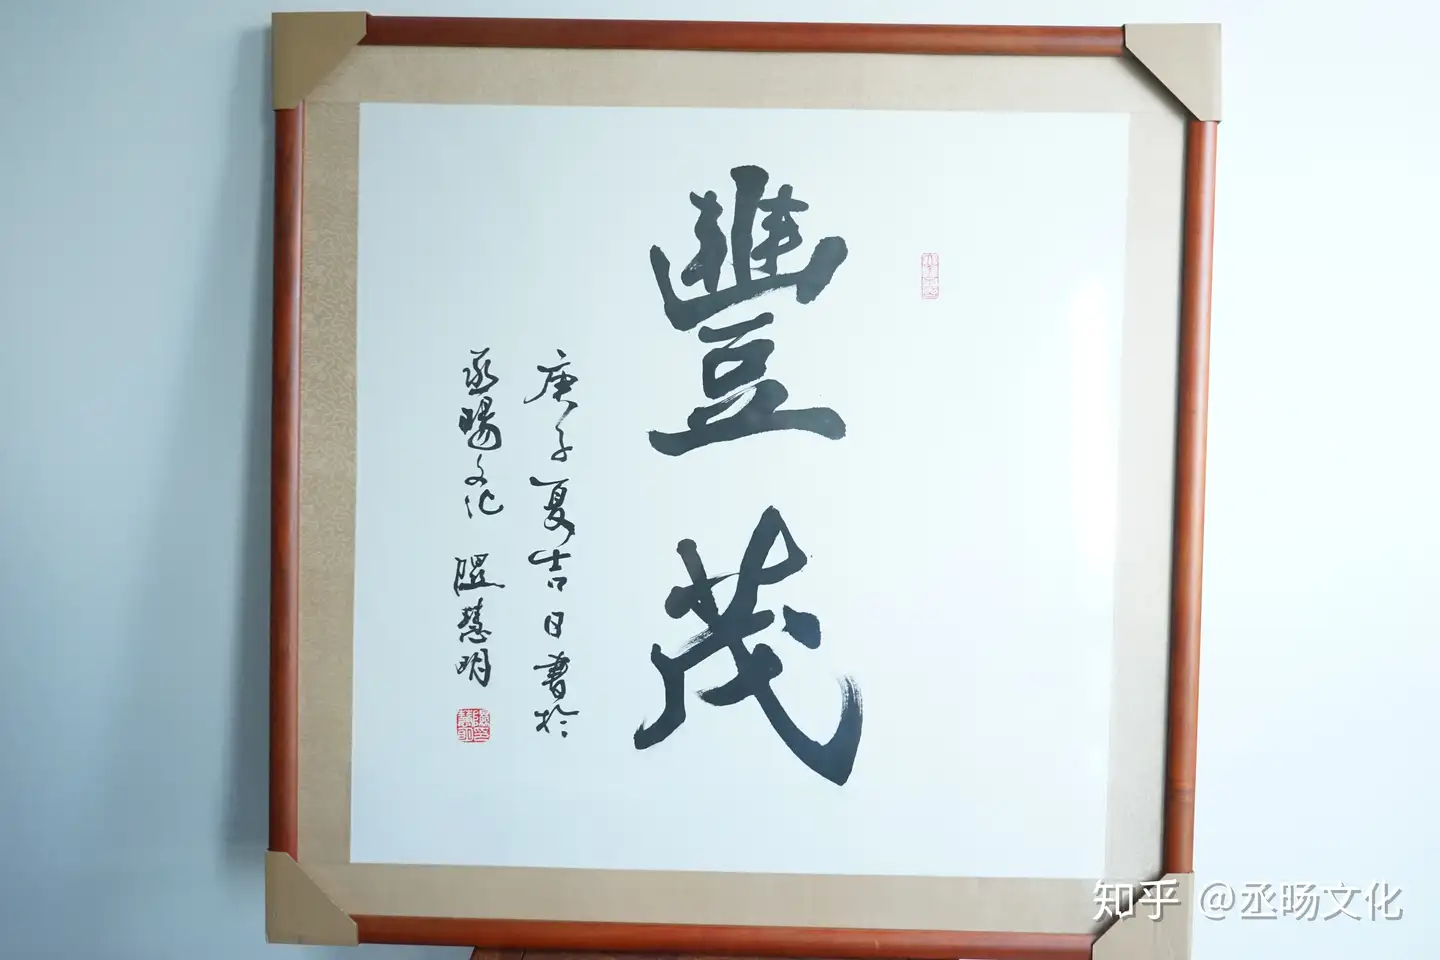 豐茂
庚子夏吉日書於
丞暘文化 隰慧明
知乎 @丞旸文化